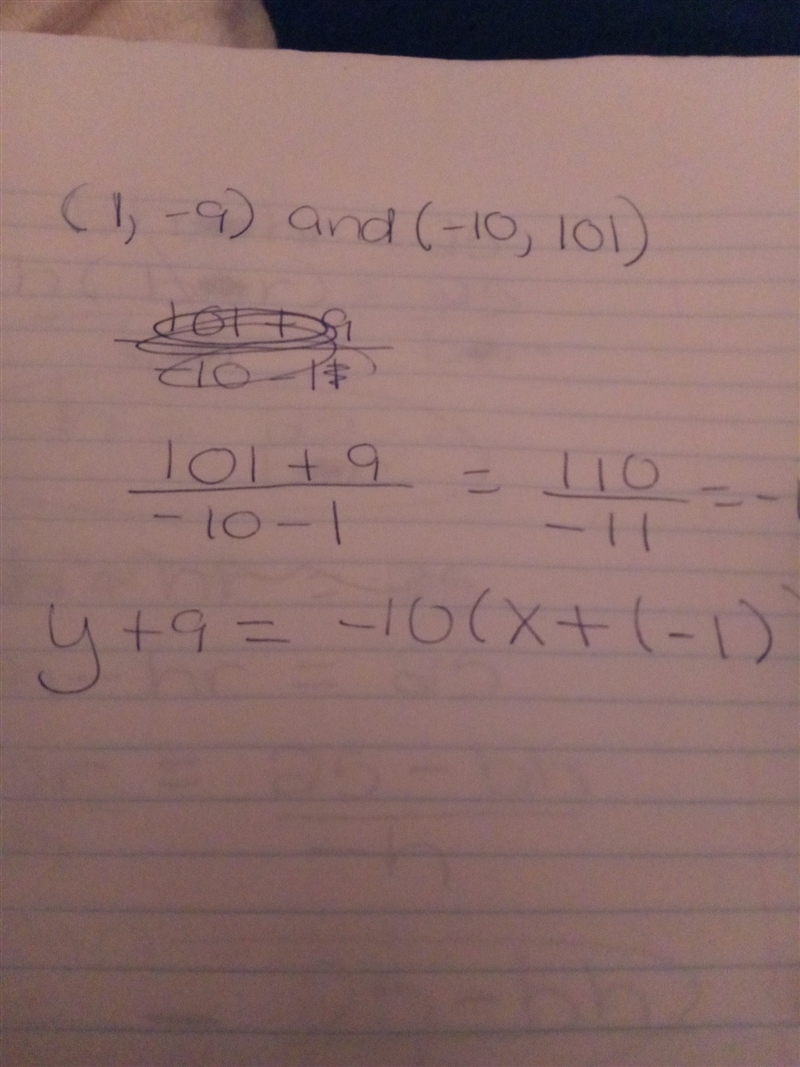 (1, -9) and (-10, 101)
101 + 9
-10 - 1
101 + 9 = 110 = -
-10 - 1 -11
y + 9 = -10(x + (-1)